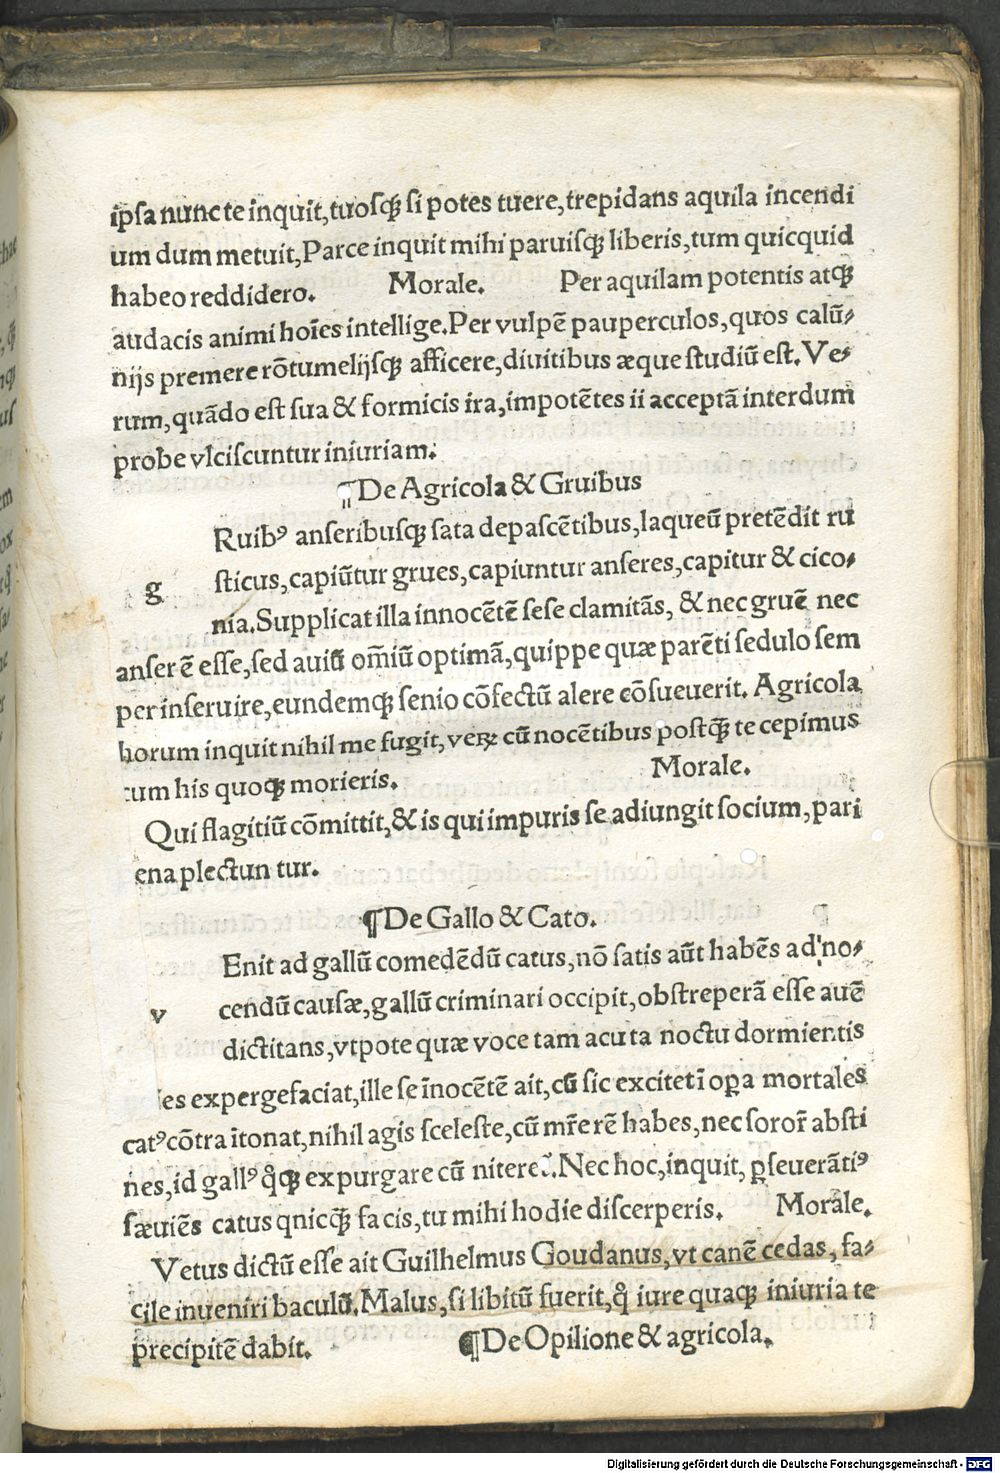 ipsa nunc te inquit,tuosqꝫ si potes tuere,trepidans aquila incendi
um dum metuit,Parce inquit mihi paruisqꝫ liberis,tum quicquid
habeo reddidero. Morale. Per aquilam potentis atqꝫ
audacis animi hoīes intellige.Per vulpē pauperculos,quos calū⸗
nijs premere rōtumelijsqꝫ afficere,diuitibus æque studiū est.Ve⸗
rum,quādo est sua & formicis ira,impotētes ii acceptā interdum
probe vlciscuntur iniuriam.
¶De Agricola & Gruibus
Ruibꝰ anseribusqꝫ sata depascētibus,laqueū pretēdit ru
g sticus,capiūtur grues,capiuntur anseres,capitur & cico⸗
nia.Supplicat illa innocētē sese clamitās, & nec gruē nec
anserē esse, sed auiū om̄iū optimā,quippe quæ parēti sedulo sem
per inseruire,eundemqꝫ senio cōfectū alere cōsueuerit. Agricola
horum inquit nihil me fugit,veꝝ cū nocētibus postqꝫ te cepimus
cum his quoqꝫ morieris. Morale.
Qui flagitiū cōmittit,& is qui impuris se adiungit socium,pari
ena plectun tur.
¶De Gallo & Cato.
Enit ad gallū comedēdū catus,nō satis aūt habēs ad no⸗
v cendū causæ,gallū criminari occipit,obstreperā esse auē
dictitans,vtpote quæ voce tam acuta noctu dormientis
les expergefaciat,ille se īnocētē ait,cū sic excitet ī oꝑa mortales
catꝰ cōtra ītonat,nihil agis sceleste,cū mr̄e rē habes,nec soror̄ absti
nes,id gallꝰ qͦqꝫ expurgare cū nitere⁊.Nec hoc,inquit, ꝑseuerātiꝰ
sæuiēs catus qnicqꝫ facis,tu mihi hodie discerperis. Morale.
Vetus dictū esse ait Guilhelmus Goudanus,vt canē cedas, fa⸗
cile inueniri baculū.Malus,si libitū fuerit,qͥ iure quaqꝫ iniuria te
precipitē dabit. ¶De Opilione & agricola.
Digitalisierung gefördert durch die Deutsche Forschungsgemeinschaft - DFG